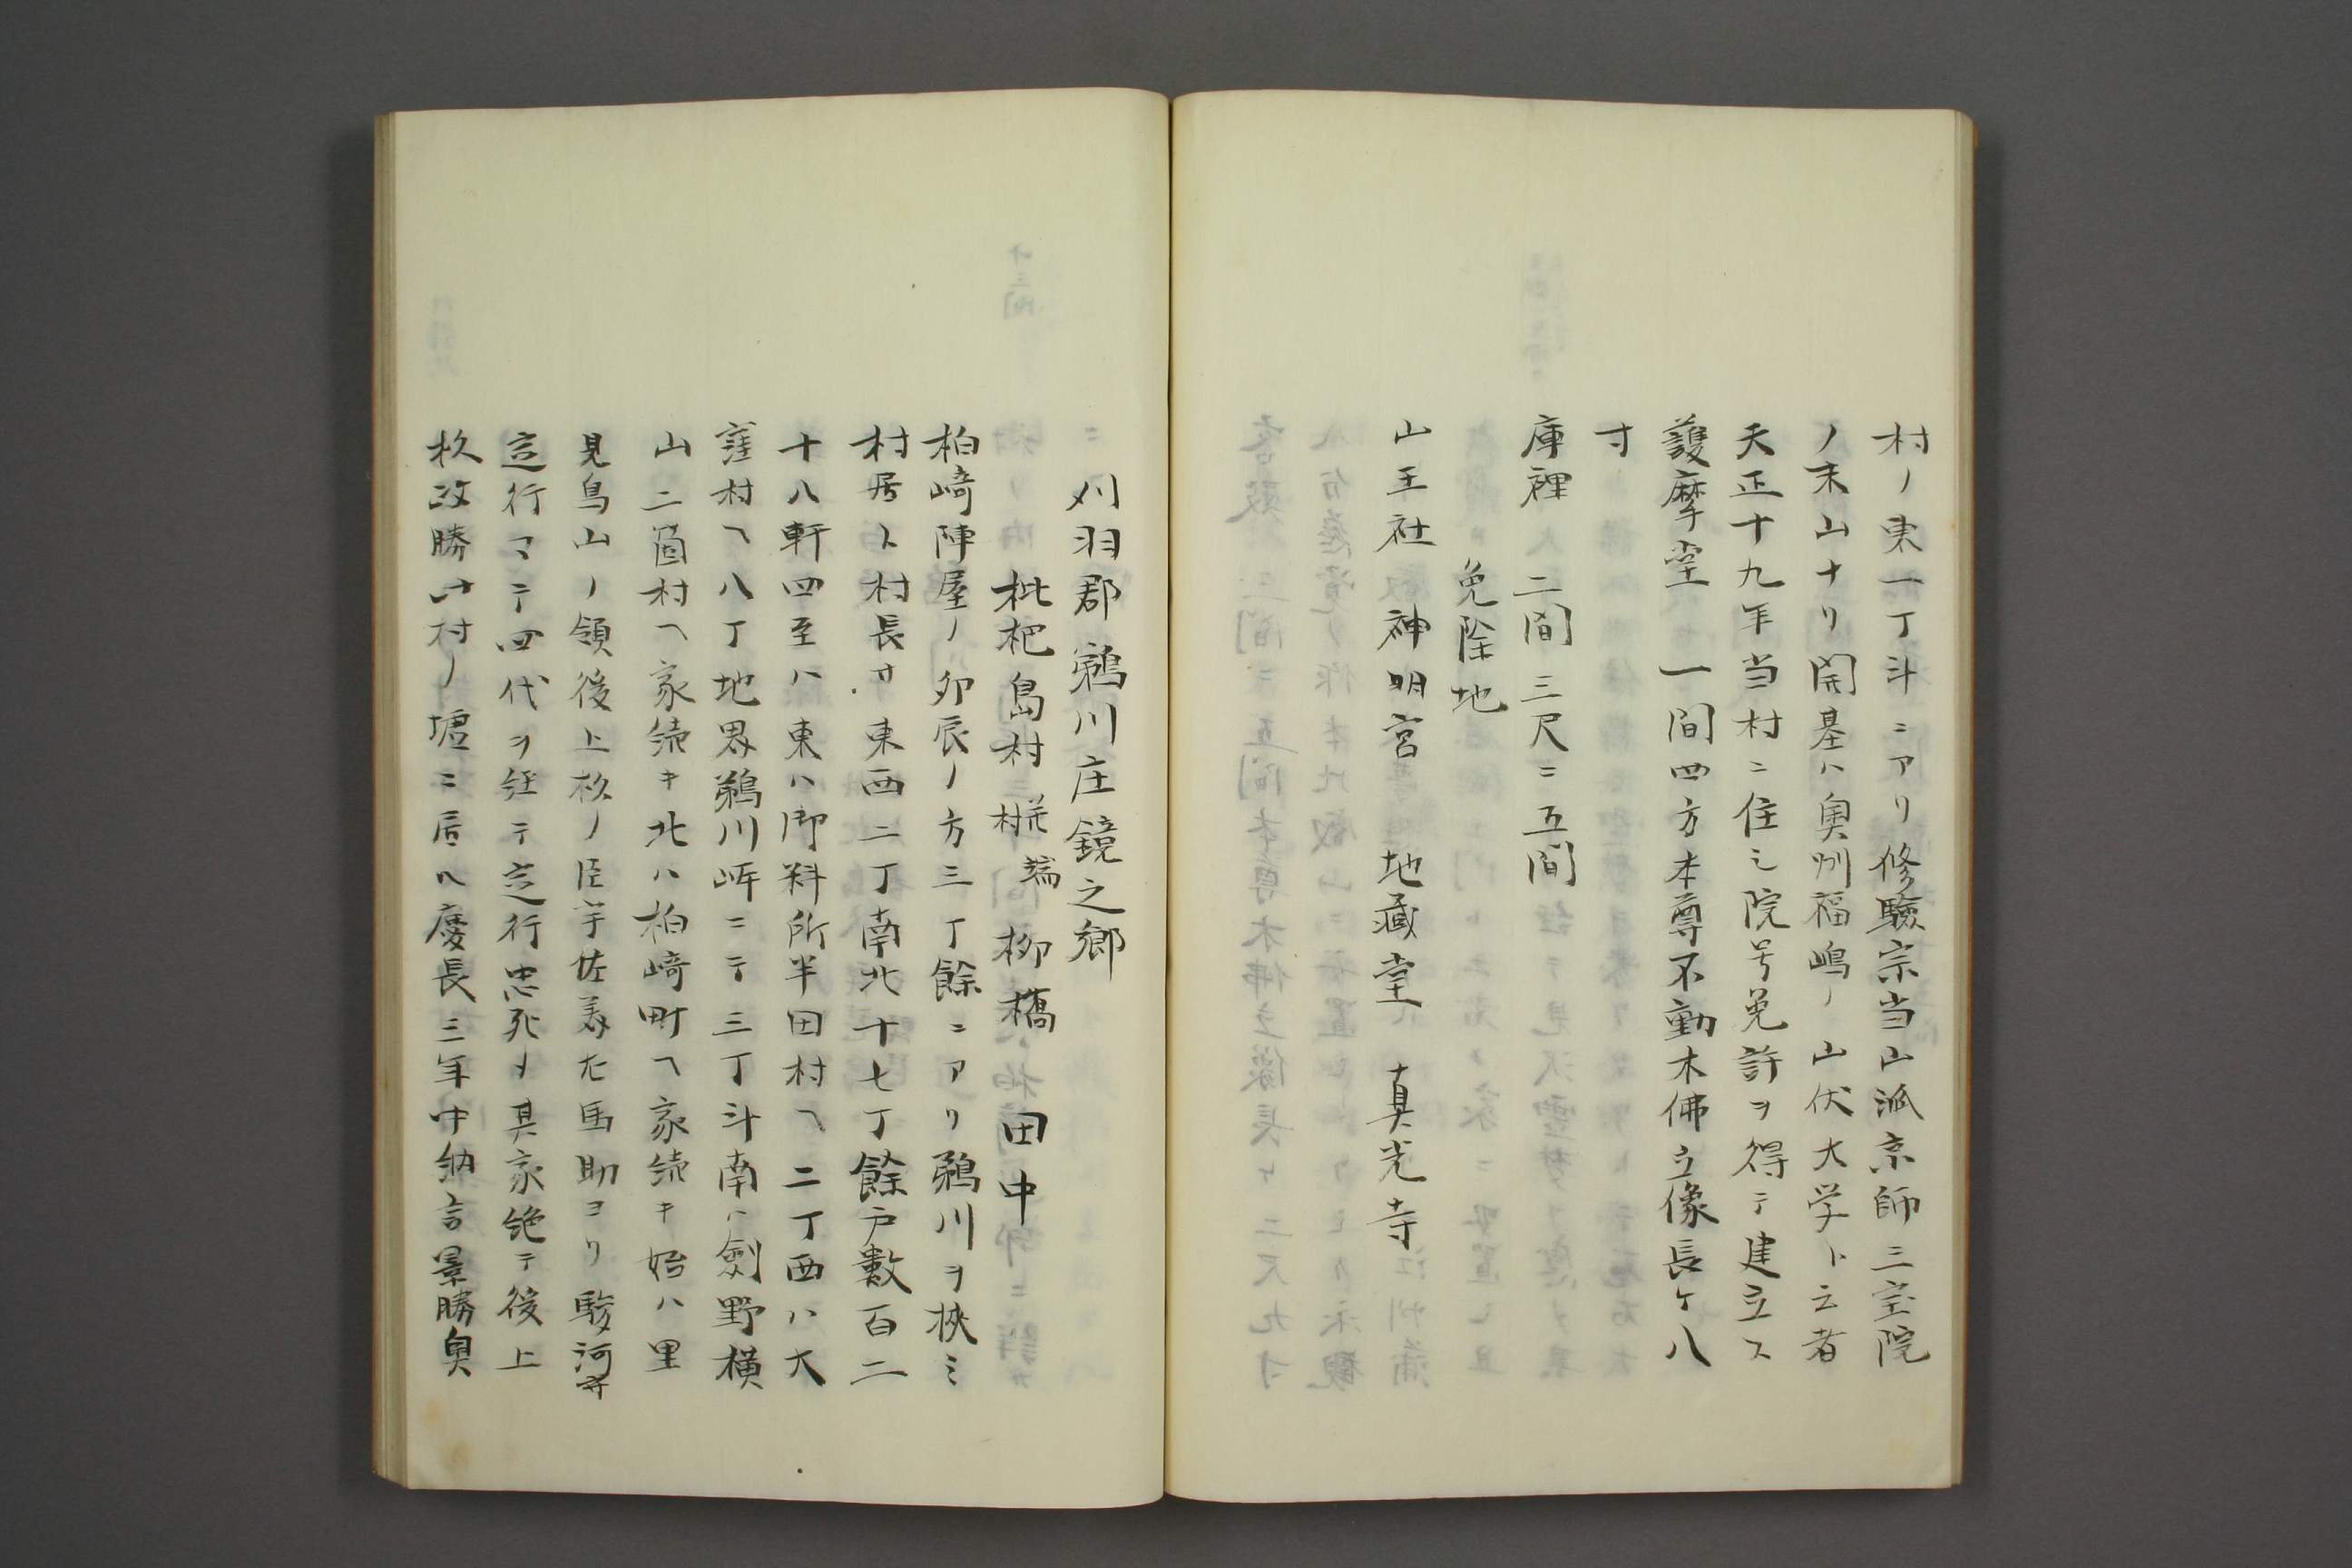 村ノ東一丁斗ニアリ修驗宗当山派京師三宝院
ノ末山ナリ開基ハ奥州福嶋ノ山伏大学ト云者
天正十九年当村ニ住シ院号免許ヲ得テ建立ス
護摩堂　一間四方本尊不動木佛立像長ケ八
寸
庫裡　二間三尺ニ五間
免除地
山王社　神明宮　地蔵堂　真光寺
刈羽郡鵜川庄鏡之郷
枇杷島村　枝村　端　柳橋　田中
柏﨑陣屋ノ卯辰ノ方三丁餘ニアリ鵜川ヲ挾ミ
村居ト村長サ東西二丁南北十七丁餘戸數百二
十八軒四至ハ東ハ御料所半田村ヘ二丁西ハ大
窪村ヘ八丁地界鵜川岸ニテ三丁斗南ハ剣野横
山二箇村ヘ家続キ北ハ柏﨑町ヘ家続キ始ハ里
見鳥山ノ領後上杦ノ臣宇佐美左馬助ヨリ駿河守
定行マテ四代ヲ経テ定行忠死メ其家絶テ後上
杦政勝此村ノ壚ニ居ヘ慶長三年中納言景勝奥